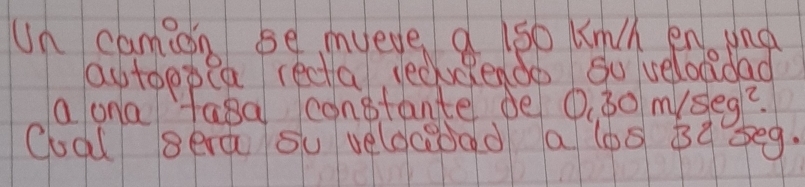 Un camión se mueve a 150 Km/h en una
autoppía recta reduciendo su velocidad
a una tasa constante de 0,30 m/seg².
Cual sera su velocidad a los 32 seg.